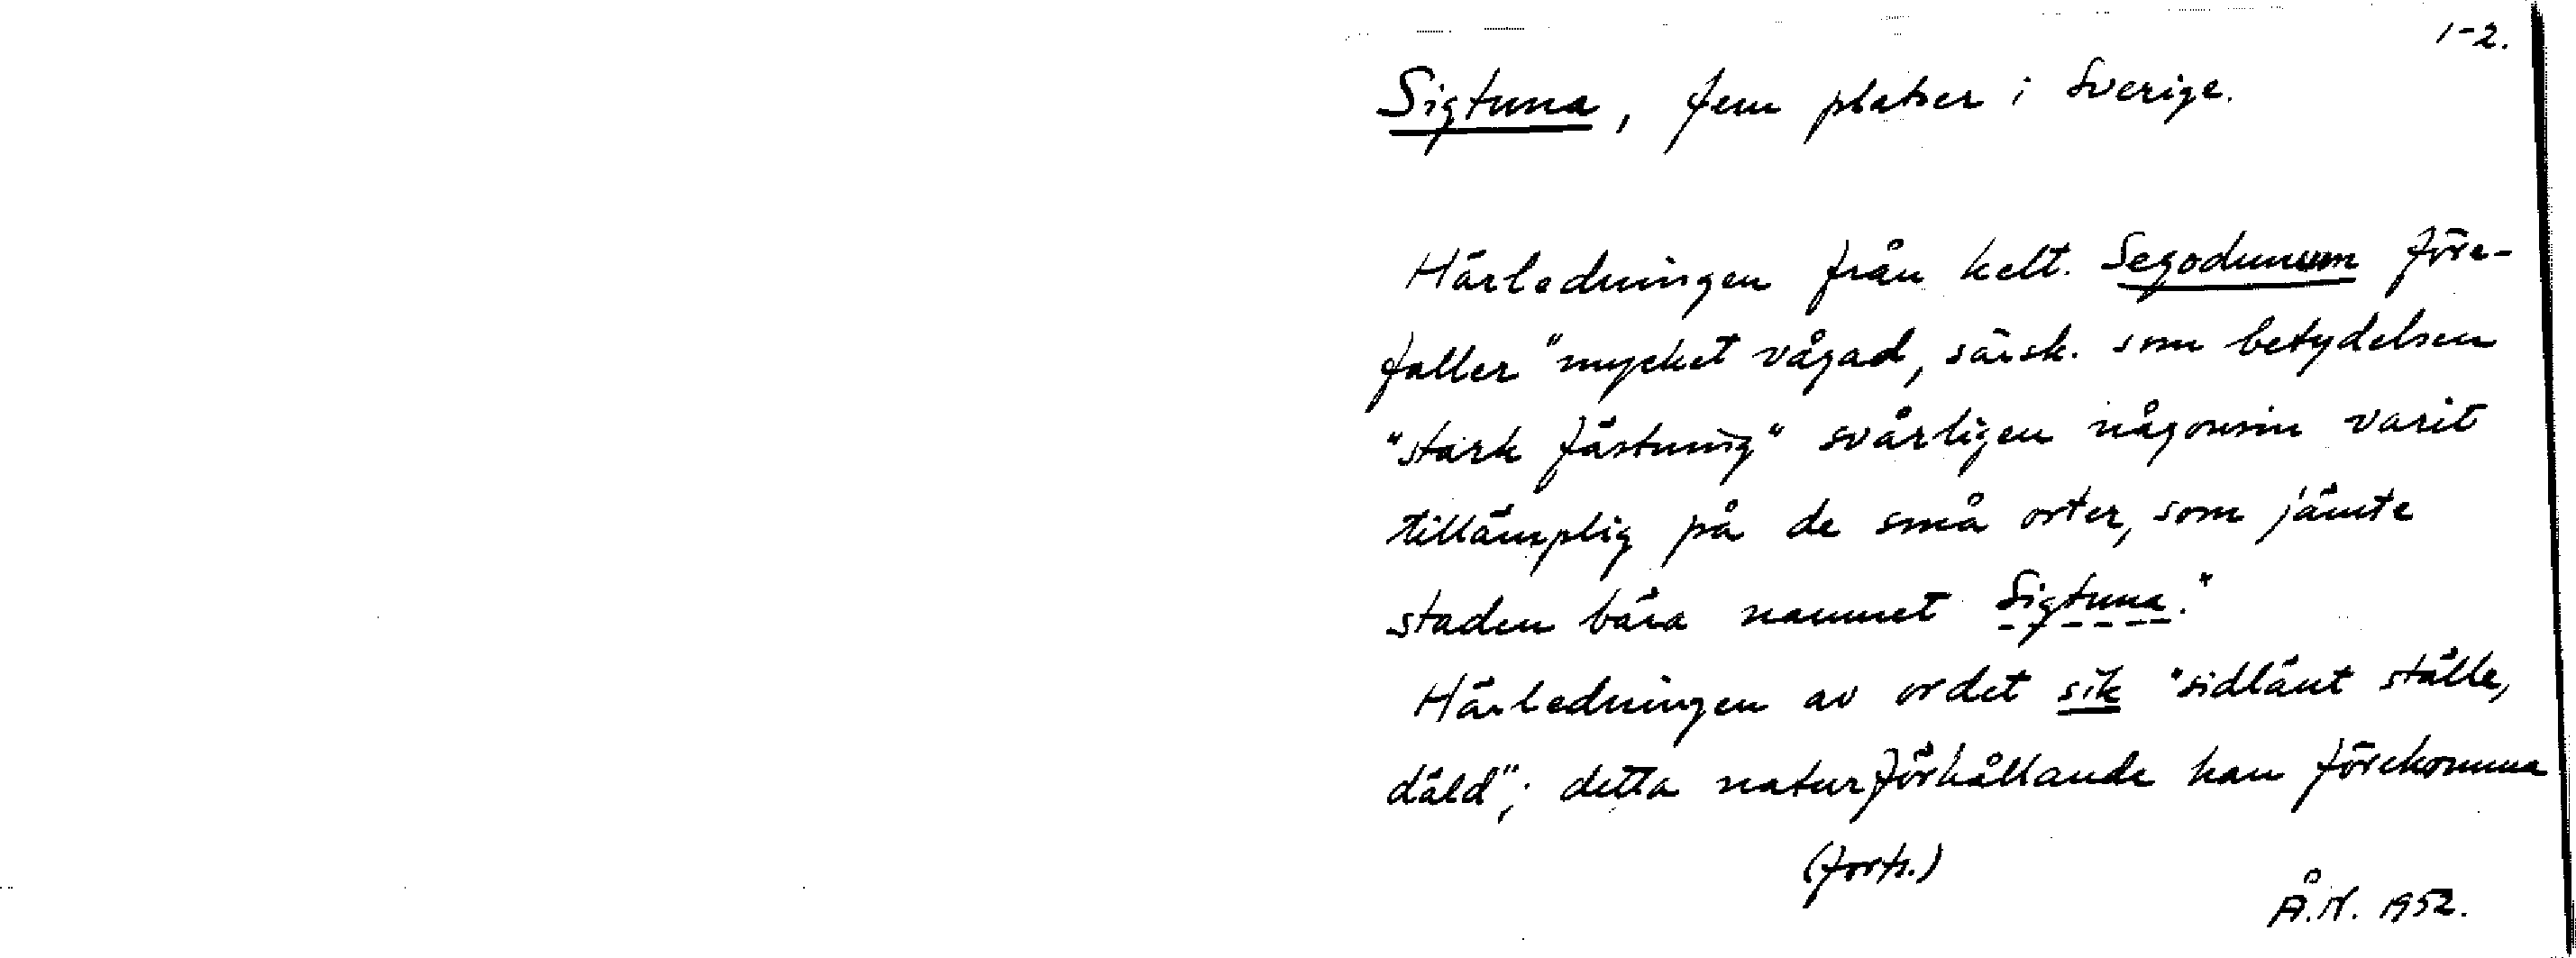 1-2.
Sigtuna, fem platser i Sverige.
Härledningen från kelt. Segodunum före-
faller "mycket vågad, särsk. som betydelsen
"stark fästning" svårligen någonsin varit
tillämplig på de små orter, som jämte
staden bära namnet Sigtuna."
Härledningen av ordet sik "sidlänt ställe,
däld"; detta naturförhållande kan förekomma
(forts.)
Å.N. 1952.